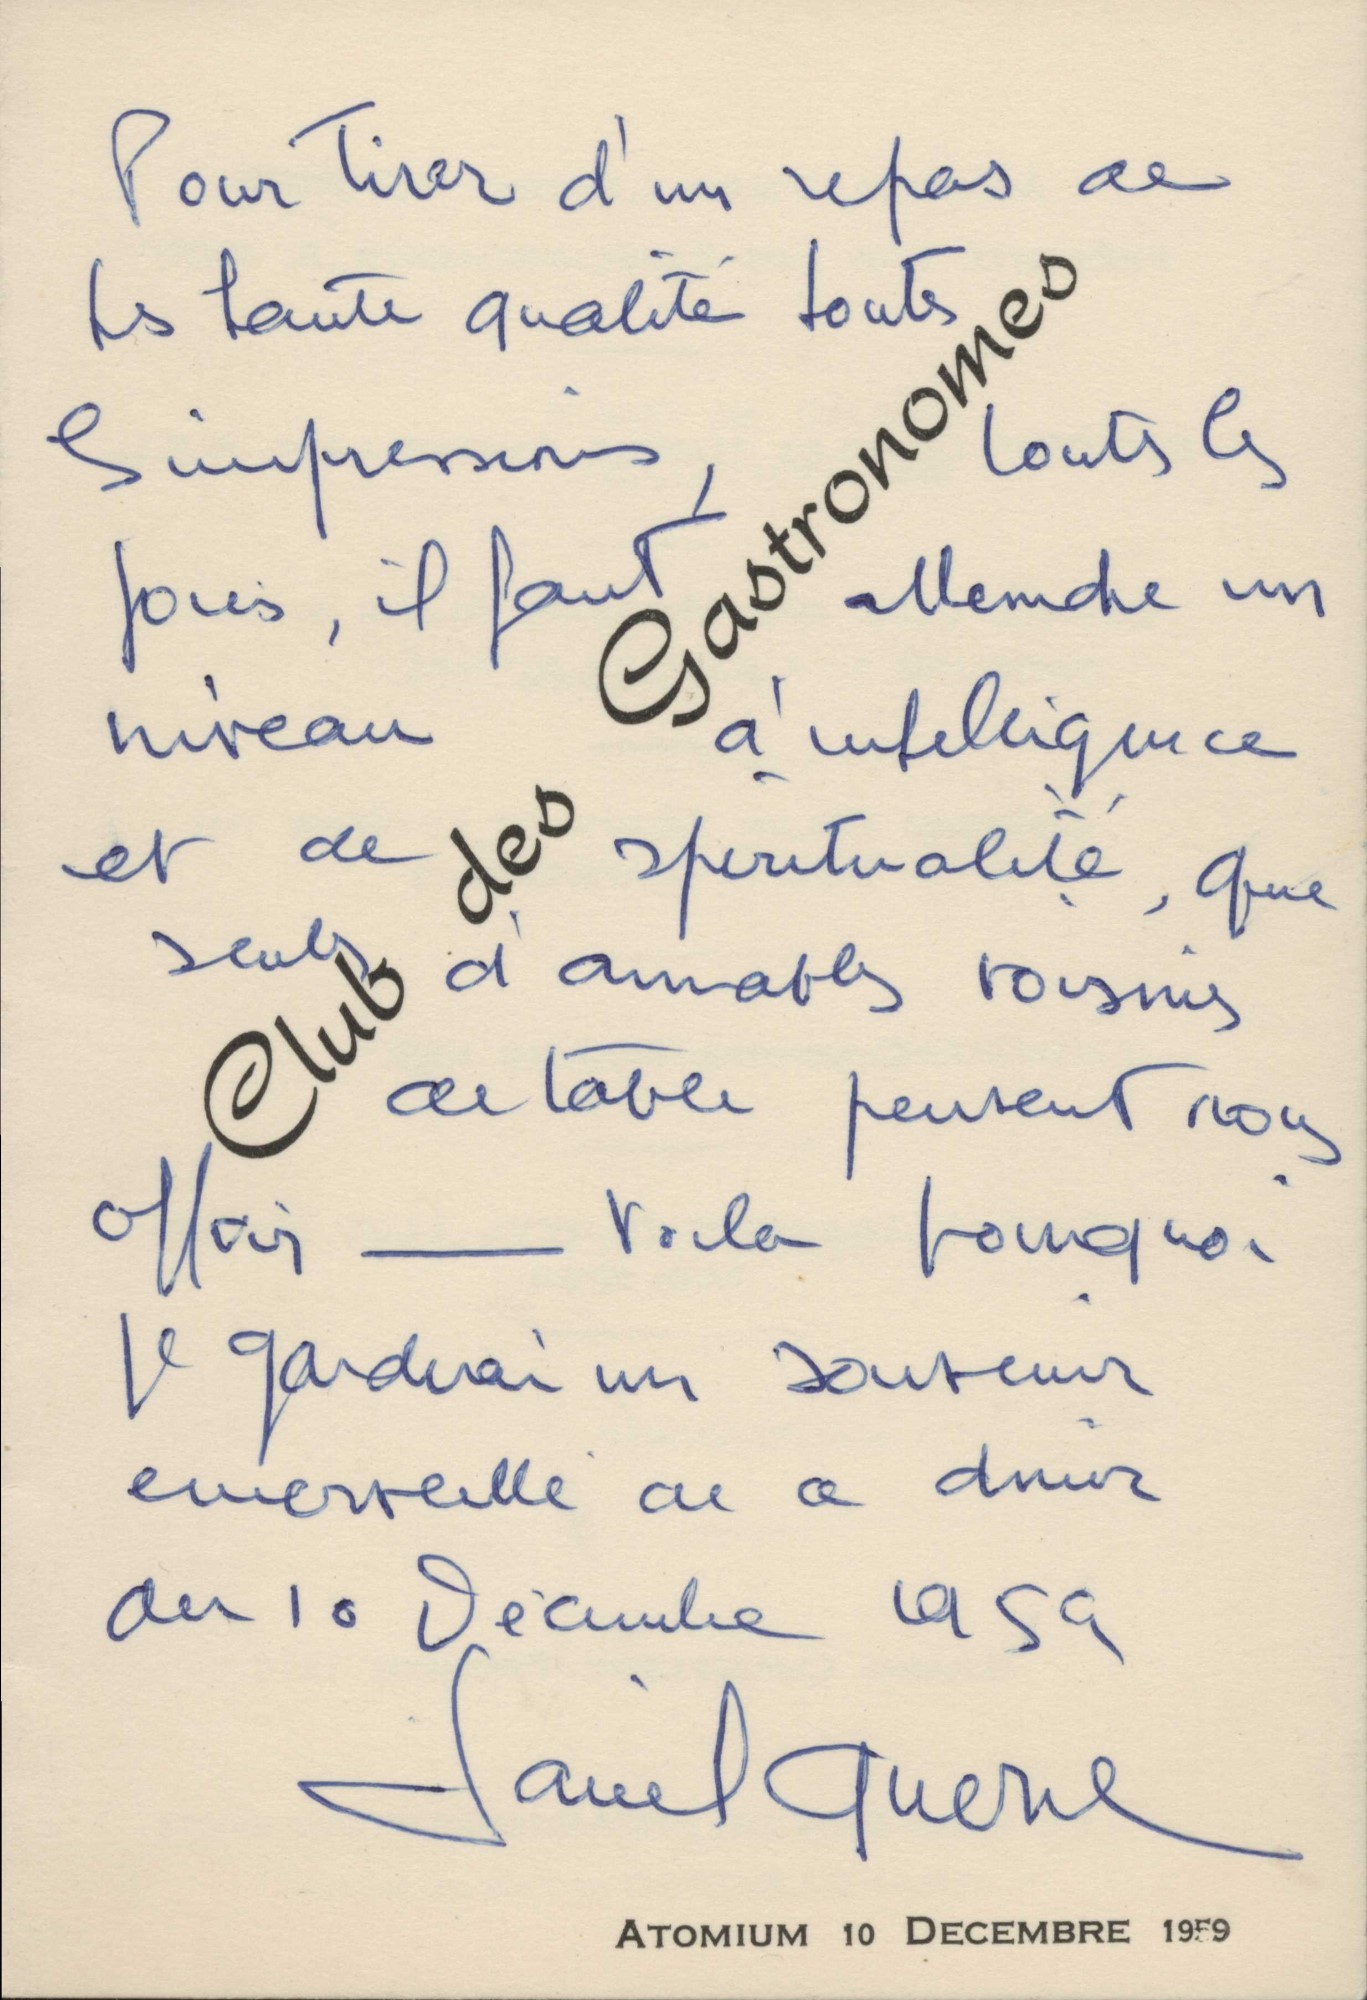 Pour tirer d'un repas de
très haute qualité toutes
les impressions, toutes les
joies, il faut atteindre un
niveau d'intelligence
et de spiritualité, que
seuls d'aimables voisins
de table peuvent nous
offrir — Voila pourquoi
je garderai un souvenir
emerveillé de ce diner
du 10 Décembre 1959
Club des Gastronomes
ATOMIUM 10 DECEMBRE 1959